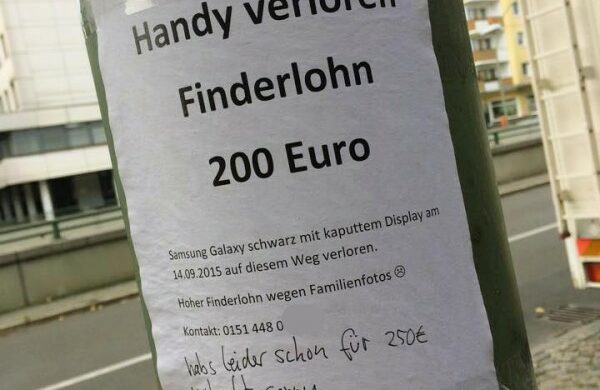 Handy verloren
Finderlohn
200 Euro
Samsung Galaxy schwarz mit kaputtem Display am
14.09.2015 auf diesem Weg verloren.
Hoher Finderlohn wegen Familienfotos ☹
Kontakt: 0151 448 0
habs leider schon für 250€